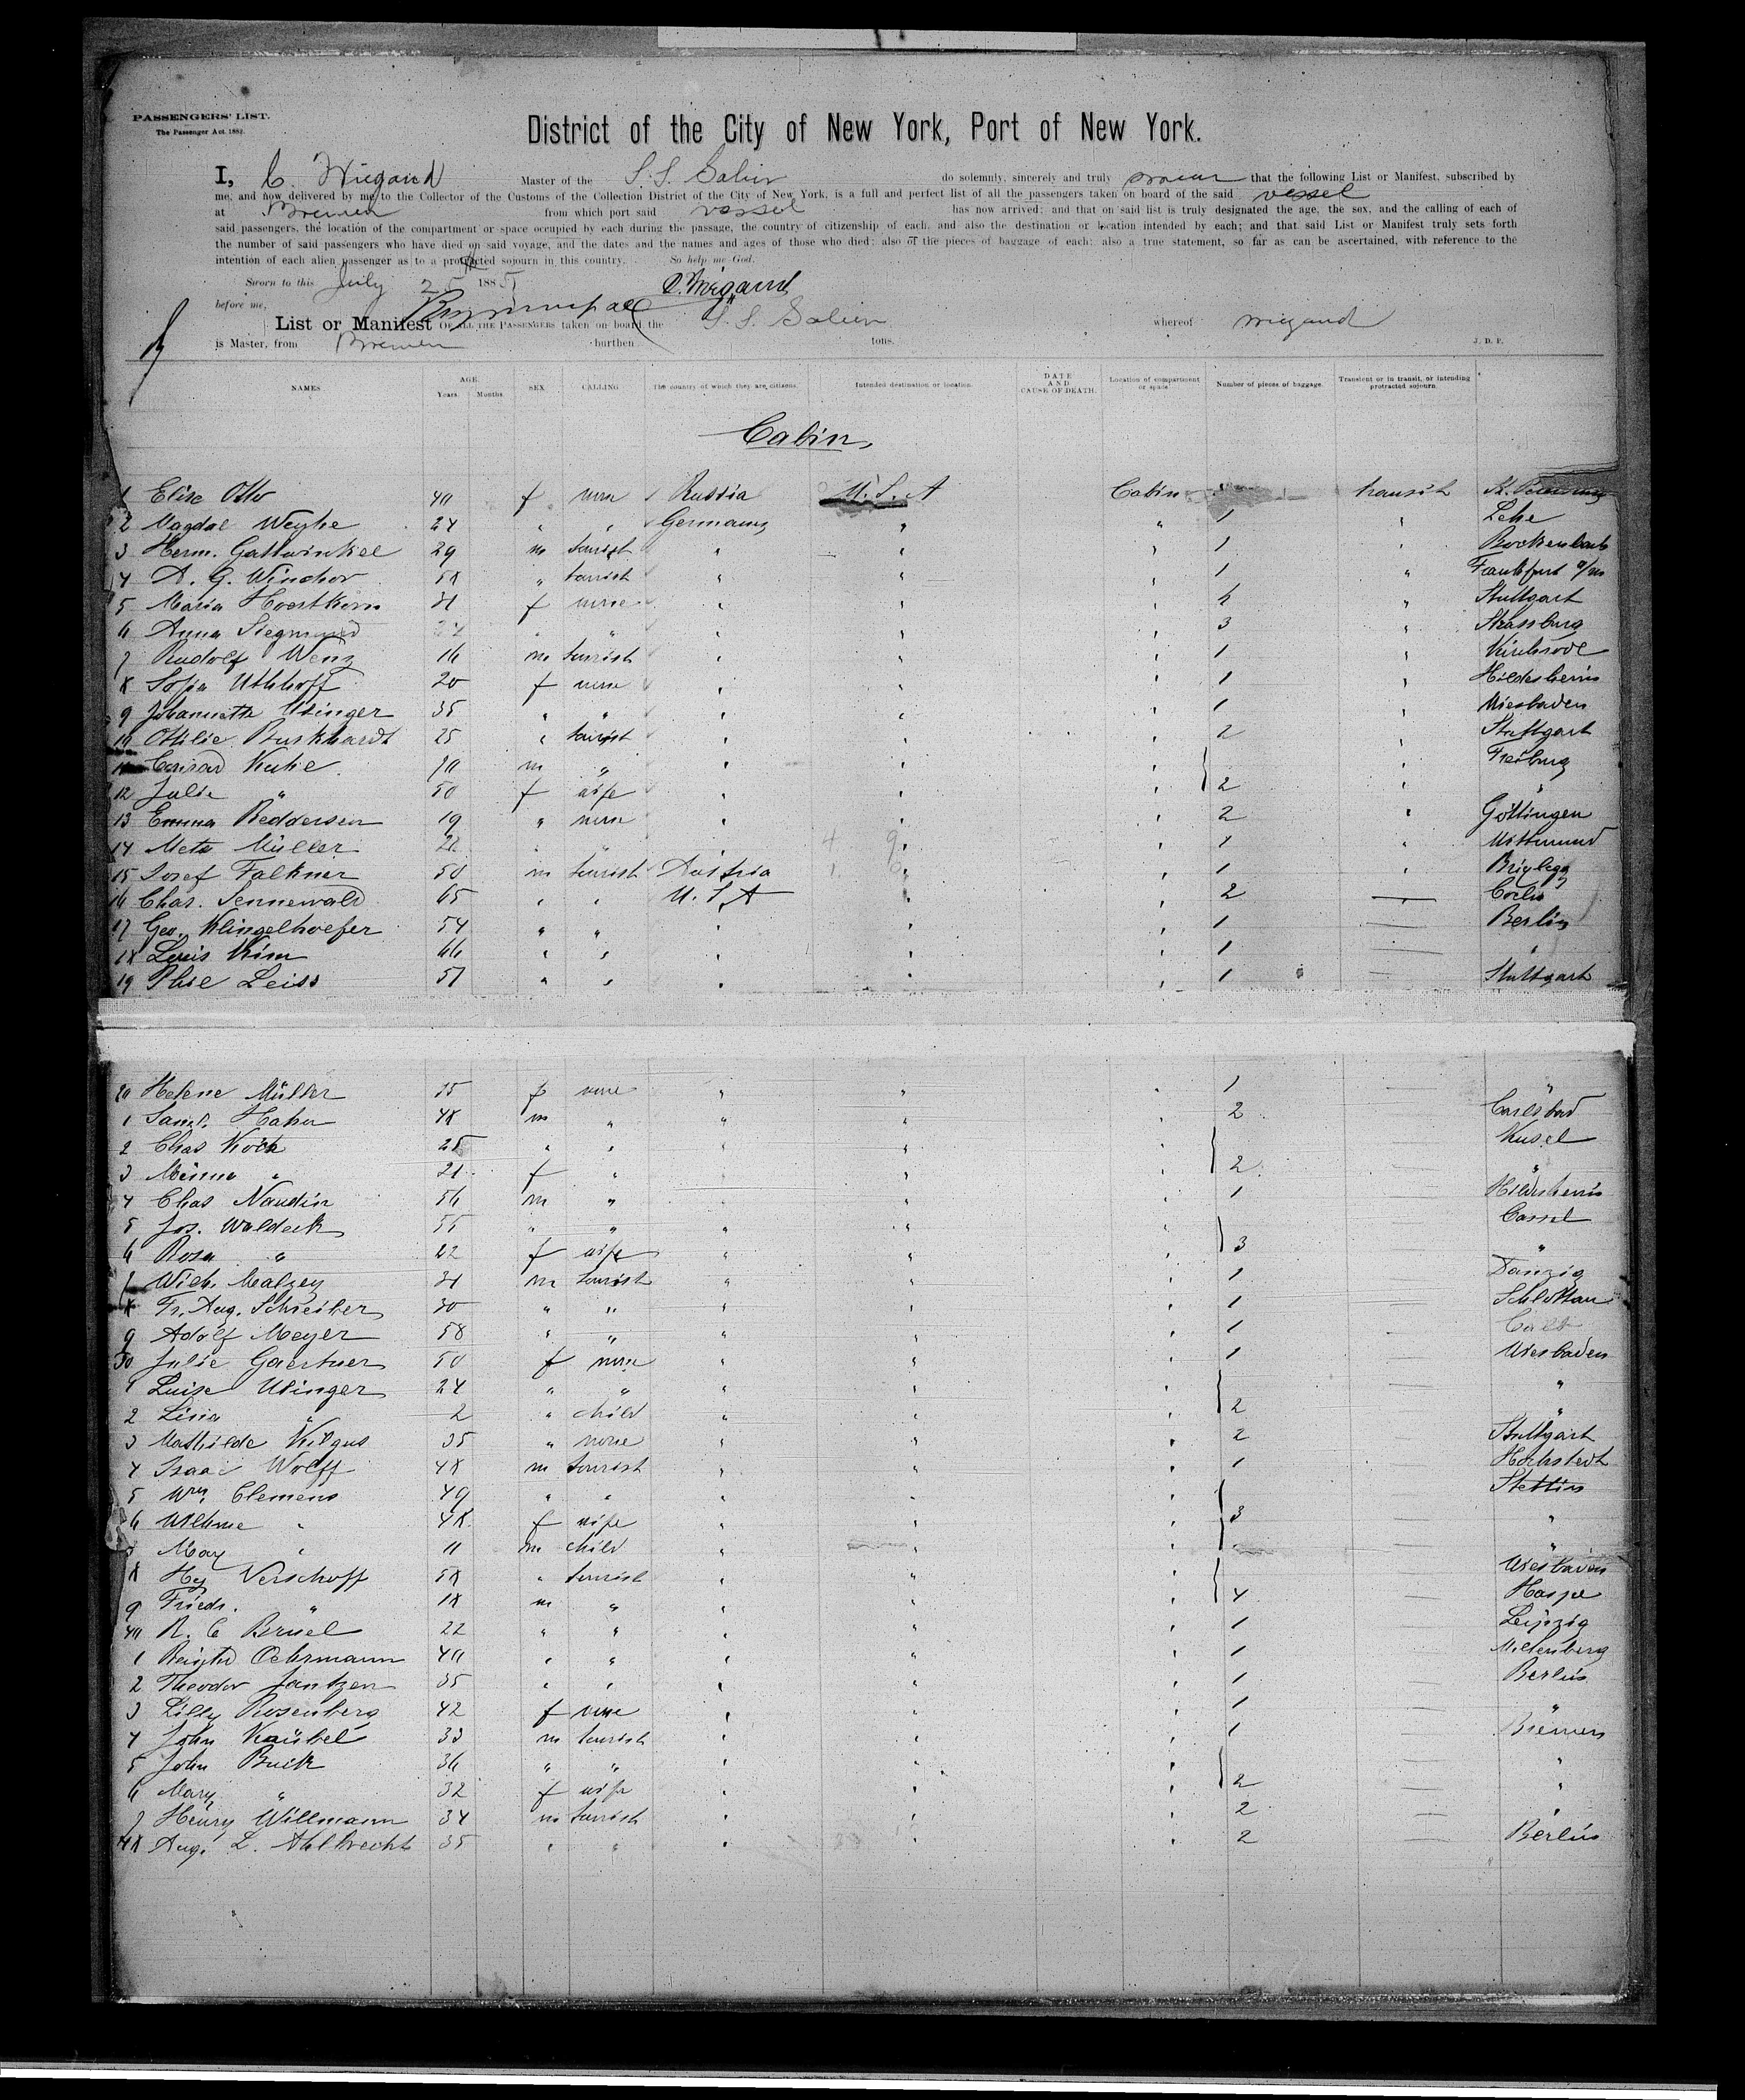 PASSENGERS' LIST.
The Passenger Act, 1882.
District of the City of New York, Port of New York.
I, C. Wiegand Master of the S.S. Salier do solemnly, sincerely and truly swear that the following List or Manifest, subscribed by
me, and now delivered by me to the Collector of the Customs of the Collection District of the City of New York, is a full and perfect list of all the passengers taken on board of the said vessel
at Bremen from which port said vessel has now arrived; and that on said list is truly designated the age, the sex, and the calling of each of
said passengers, the location of the compartment or space occupied by each during the passage, the country of citizenship of each, and also the destination or location intended by each; and that said List or Manifest truly sets forth
the number of said passengers who have died on said voyage, and the dates and the names and ages of those who died; also of the pieces of baggage of each; also a true statement, so far as can be ascertained, with reference to the
intention of each alien passenger as to a protracted sojourn in this country. So help me God.
Sworn to this July 25 1885 C. Wiegand
before me,
List or Manifest OF ALL THE PASSENGERS taken on board the S.S. Salier whereof Wiegand
is Master, from Bremen burthen tons. J. D. P.
NAMES AGE. Years. Months. SEX. CALLING. The country of which they are citizens. Intended destination or location. DATE AND CAUSE OF DEATH. Location of compartment or space. Number of pieces of baggage. Transient or in transit, or intending protracted sojourn.
Cabin,
1 Elise Otto 40 f none Russia U.S.A Cabin transit
2 Magdal Weyhe 24 " " Germany " " 1 " Lehe
3 Herm. Gattwinkel 29 m tourist " " " 1 "
4 A. G. Windhor 58 " tourist " " " 1 " Frankfurt a/m
5 Maria 31 f none " " " " Stuttgart
6 Anna Siegmund " " " " " 3 " Strassburg
7 Rudolf Wenz 16 m tourist " " " 1 " Kirchrode
8 Sofia Uthhoff 20 f none " " " 1 " Hildesheim
9 Johannette Usinger 35 " " " " " 1 " Wiesbaden
10 Ottilie Burkhardt 25 " tourist " " " 2 " Stuttgart
11 Conrad Kuhe 70 m " " " " " Freiburg
12 Julie " 50 f wife " " " 2 " "
13 Emma Beddersen 19 " none " " " 2 " Göttingen
14 Meta Müller 22 " " " " 1 " Wittmund
15 Josef Falkner 50 m tourist Austria " " 1 " Brixlegg
16 Chas. Sennewald 65 " " U.S.A " " 2 —
17 Geo. Klingelhoefer 54 " " " " " 1 — Berlin
18 Louis Kim 66 " " " " " 1 — "
19 Leiss 51 " " " " " 1 — Stuttgart
20 Helene Müller 35 f none " " " 1 — "
1 Saml. Hahn 48 m " " " " 2 — Carlsbad
2 Chas Koch 25 " " " " " — Kusel
3 Minna " 21 f " " " " 2 — "
4 Chas Naudin 56 m " " " " 1 — Hildesheim
5 Jos. Waldeck 55 " " " " " — Cassel
6 Rosa " 22 f wife " " " 3 — "
7 Malzey 31 m tourist " " " 1 — Danzig
8 Fr. Aug. Schreiber 30 " " " " " 1 —
9 Adolf Meyer 58 " " " " " 1 —
30 Julie Gaertner 50 f none " " " 1 — Wiesbaden
1 Luise Usinger 24 " " " " " — "
2 Lina " 2 " child " " " 2 — "
3 Mathilde Kilgus 35 " none " " " 2 — Stuttgart
4 Isaac Wolff 48 m tourist " " " 1 —
5 Wm. Clemens 49 " " " " " — Stettin
6 " 48 f wife " " " 3 — "
7 Max " 11 m child " " " — "
8 Hy Verschoff 58 " tourist " " " — Wiesbaden
9 Friedr. " 18 m " " " " 4 — Haspe
40 R. C. Bruel 22 " " " " " 1 — Leipzig
1 Oehrmann 40 " " " " " 1 — Miltenberg
2 Theodor Jantzen 35 " " " " " 1 — Berlin
3 Lilly Rosenberg 42 f none " " " 1 — "
4 John Kaübel 33 m tourist " " " 1 — Bremen
5 John Buck 36 " " " " " — "
6 Mary " 32 f wife " " " 2 — "
7 Henry Willmann 34 m tourist " " " 2 — "
48 Aug. L. Ahlbrecht 35 " " " " " 2 — Berlin